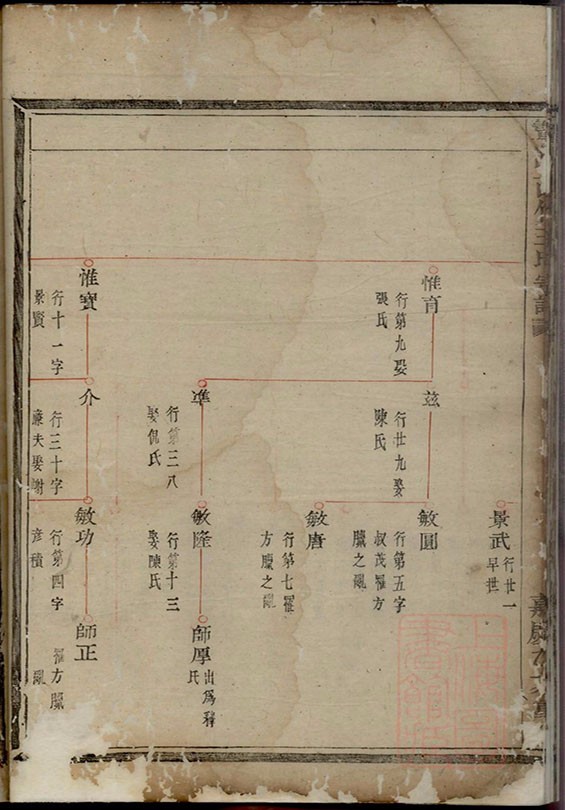 景武
行廿一
早世
惟育
行第九娶
張氏
茲
行廿九娶
陳氏
敏圓
行第五字
叔茂羅方
臘之亂
敏唐
行第七羅
方臘之亂
準
行第三八
娶倪氏
敏隆
行第十三
娶陳氏
師厚
出為釋
氏
惟寶
行十一字
景賢
介
行三十字
廉夫娶謝
敏功
行第四字
彥積
師正
罹方臘
亂